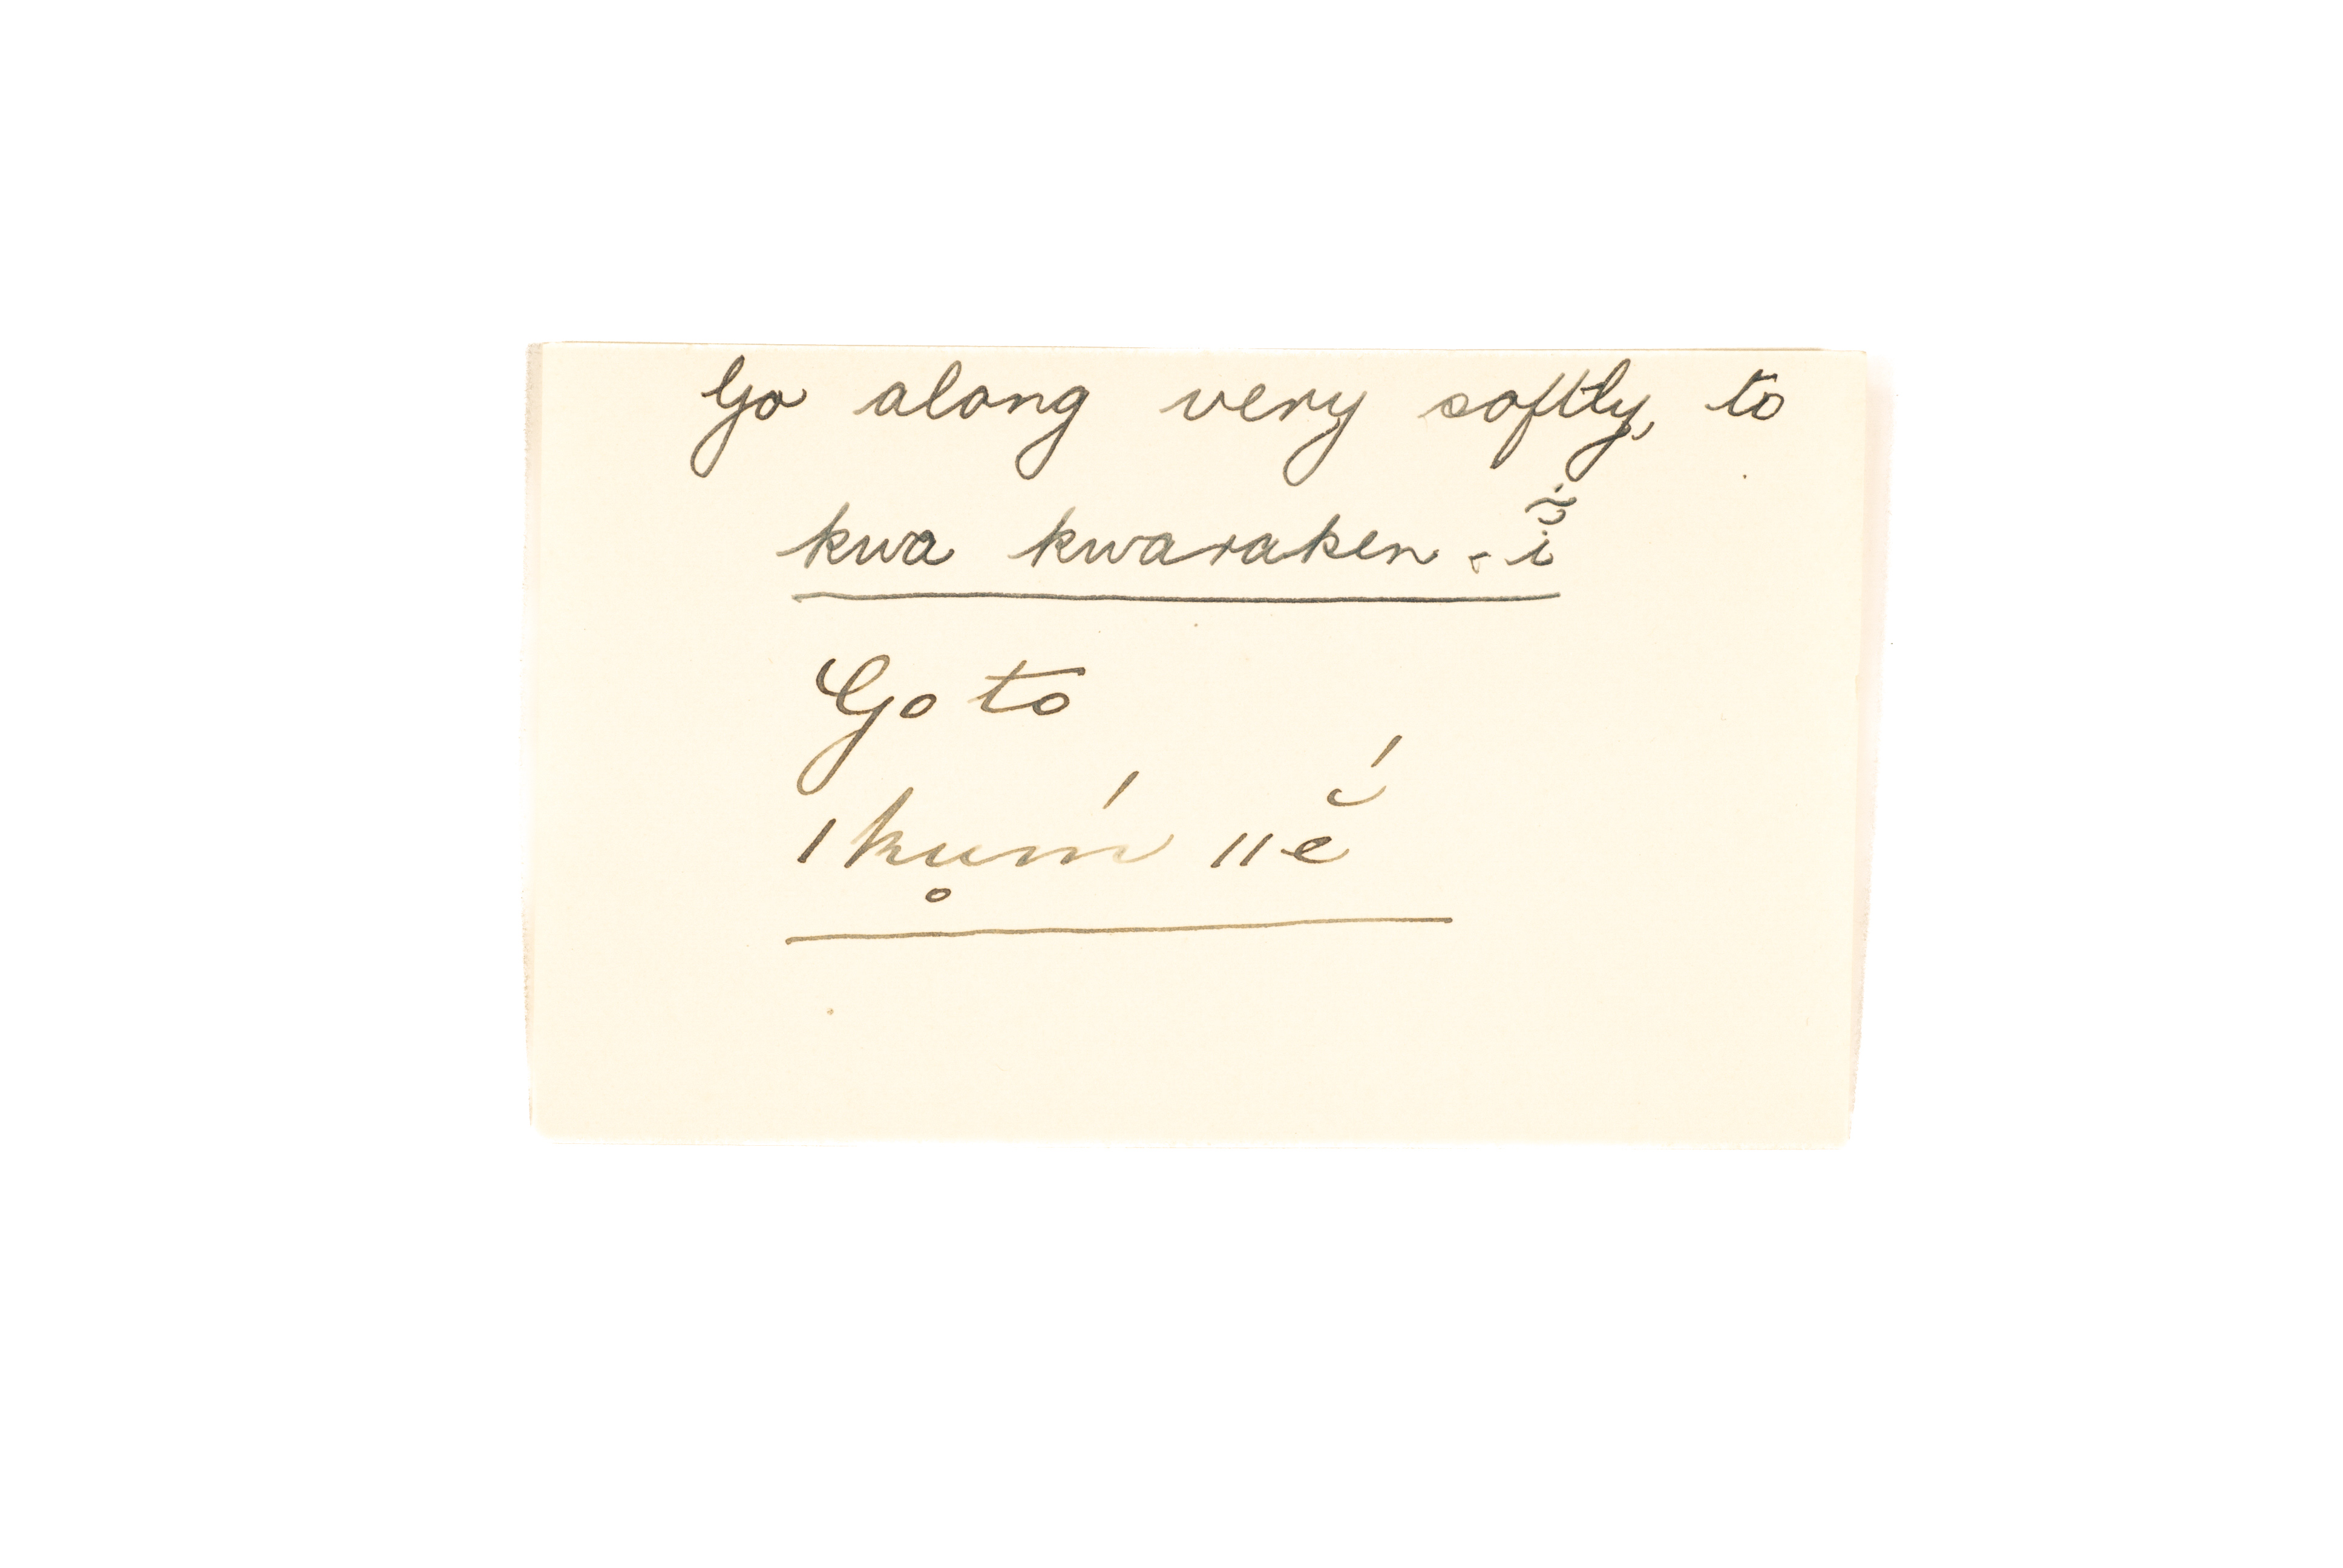 Go along very softly, to
kwa kwaraken - ĩ̆
Go to
ǀku̥ḿ ǁĕ́